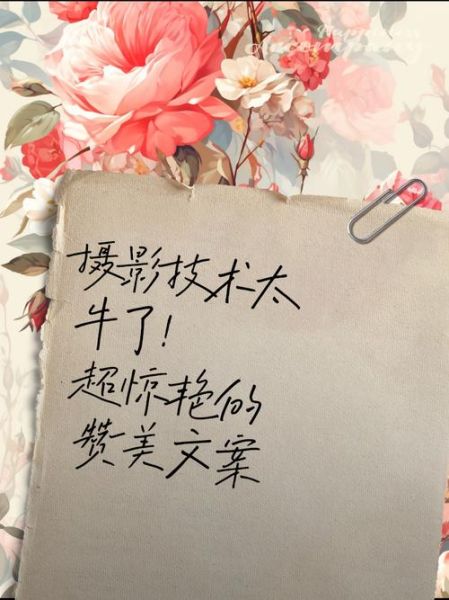 Happiness
Accompany
摄影技术太
牛了!
超惊艳的
赞美文案